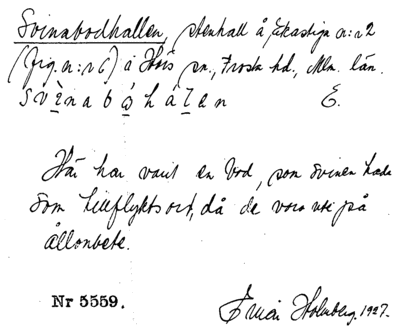 Svinabodhallen, stenhall å Ekastiga n:r 2
(fig. n:r 6) i Hörs sn., Frosta hd., Mlm. län.
svìnabo̥hálen E.
Här har varit en bod, som svinen hade
som tillflyktsort, då de voro ute på
ållonbete.
Nr 5559.
Holmberg. 1927.